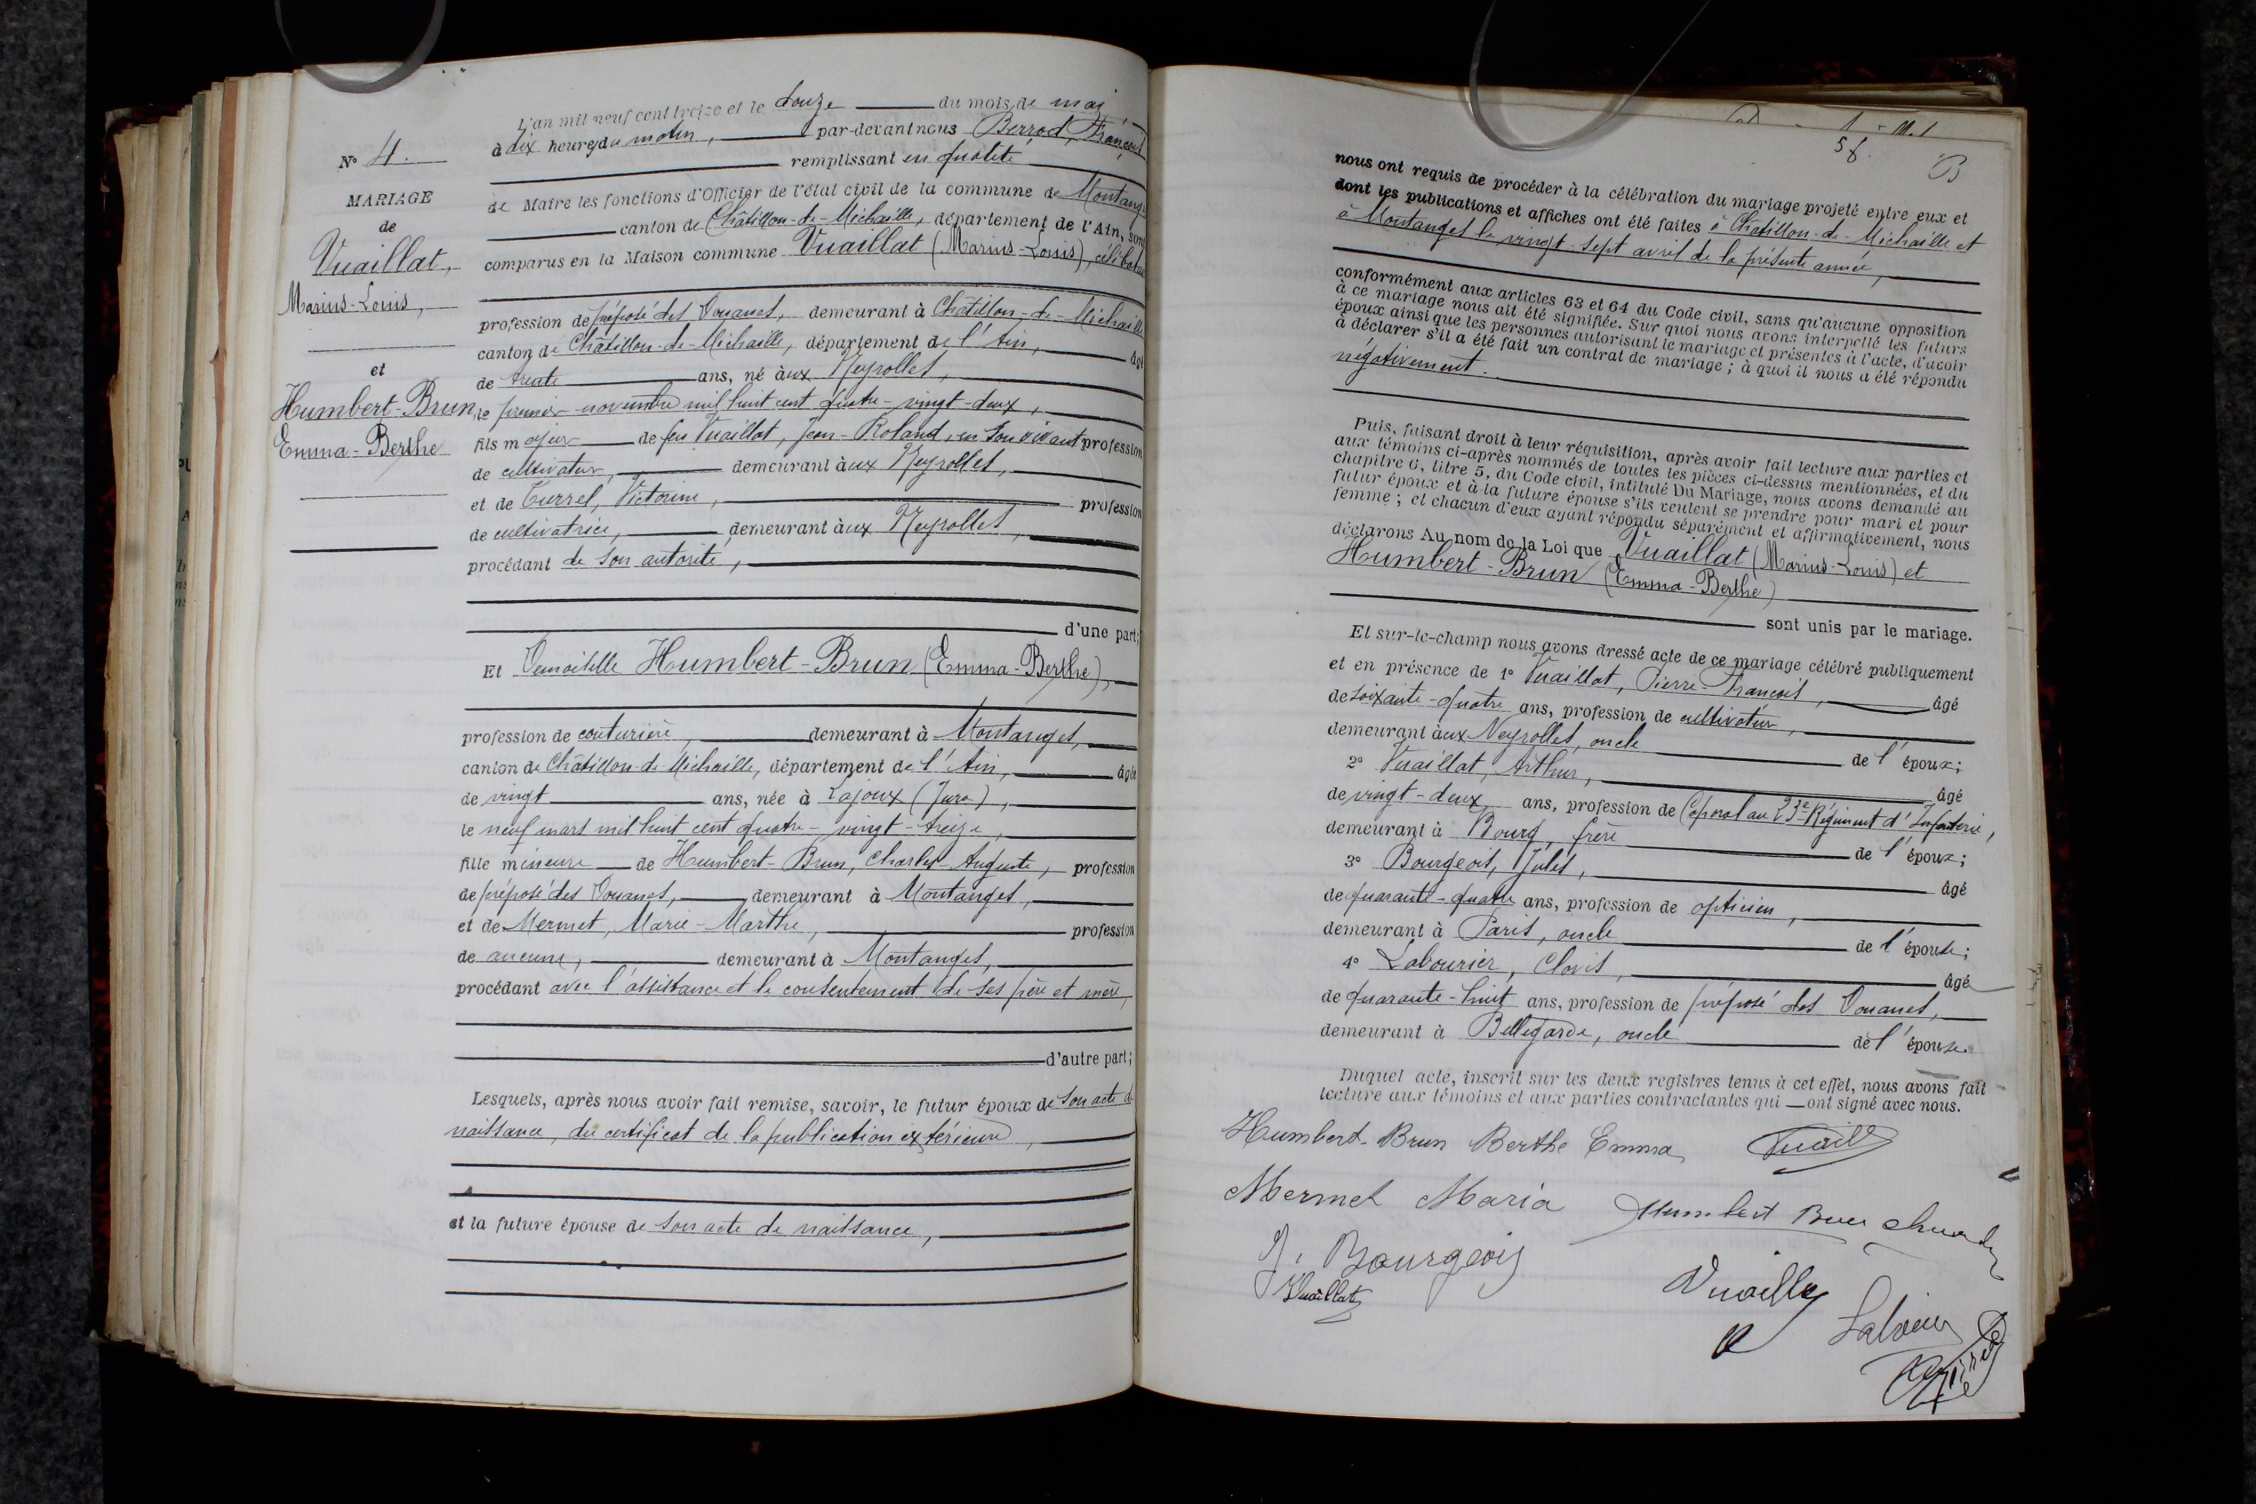 L'an mil neuf cent treize et le douze du mois de mai
à dix heures du matin, par-devant nous Berrod, François
remplissant en qualité
N° 4.
de Maire les fonctions d'Officier de l'état civil de la commune de Montanges
canton de Châtillon-de-Michaille, département de l'Ain, sont
comparus en la Maison commune Vuaillat (Marius-Louis), célibataire
MARIAGE
de
Vuaillat,
Marius-Louis,
et
Humbert-Brun,
Emma-Berthe
profession de préposé des Douanes, demeurant à Châtillon-de-Michaille
canton de Châtillon-de-Michaille, département de l'Ain, âgé
de trente ans, né aux Neyrolles,
le premier novembre mil huit cent quatre-vingt-deux,
fils majeur de feu Vuaillat, Jean-Roland, en son vivant profession
de cultivateur, demeurant aux Neyrolles,
et de Turrel, Victorine, profession
de cultivatrice, demeurant aux Neyrolles,
procédant de son autorité,
d'une part;
Et Demoiselle Humbert-Brun (Emma-Berthe),
profession de couturière, demeurant à Montanges,
canton de Châtillon-de-Michaille, département de l'Ain, âgée
de vingt ans, née à Lajoux (Jura),
le neuf mars mil huit cent quatre-vingt-treize,
fille mineure de Humbert-Brun, Charles-Auguste, profession
de préposé des Douanes, demeurant à Montanges,
et de Mermet, Marie-Marthe, profession
de aucune, demeurant à Montanges,
procédant avec l'assistance et le consentement de ses père et mère,
d'autre part;
Lesquels, après nous avoir fait remise, savoir, le futur époux de son acte de
naissance, du certificat de la publication extérieure,
et la future épouse de son acte de naissance,
58.
B
nous ont requis de procéder à la célébration du mariage projeté entre eux et
dont les publications et affiches ont été faites à Châtillon-de-Michaille et
à Montanges le vingt-sept avril de la présente année,
conformément aux articles 63 et 64 du Code civil, sans qu'aucune opposition
à ce mariage nous ait été signifiée. Sur quoi nous avons interpellé les futurs
époux ainsi que les personnes autorisant le mariage et présentes à l'acte, d'avoir
à déclarer s'il a été fait un contrat de mariage; à quoi il nous a été répondu
négativement.
Puis, faisant droit à leur réquisition, après avoir fait lecture aux parties et
aux témoins ci-après nommés de toutes les pièces ci-dessus mentionnées, et du
chapitre 6, titre 5, du Code civil, intitulé Du Mariage, nous avons demandé au
futur époux et à la future épouse s'ils veulent se prendre pour mari et pour
femme; et chacun d'eux ayant répondu séparément et affirmativement, nous
déclarons Au nom de la Loi que Vuaillat (Marius-Louis) et
Humbert-Brun (Emma-Berthe)
sont unis par le mariage.
Et sur-le-champ nous avons dressé acte de ce mariage célébré publiquement
et en présence de 1° Vuaillat, Pierre-François, âgé
de soixante-quatre ans, profession de cultivateur,
demeurant aux Neyrolles, oncle de l'époux;
2° Vuaillat, Arthur, âgé
de vingt-deux ans, profession de Caporal au 23e Régiment d'Infanterie,
demeurant à Bourg, frère de l'époux;
3° Bourgeois, Jules, âgé
de quarante-quatre ans, profession de opticien,
demeurant à Paris, oncle de l'épouse;
4° Labourier, Clovis, âgé
de quarante-huit ans, profession de préposé des Douanes,
demeurant à Bellegarde, oncle de l'épouse.
Duquel acte, inscrit sur les deux registres tenus à cet effet, nous avons fait
lecture aux témoins et aux parties contractantes qui ont signé avec nous.
Humbert-Brun Berthe Emma
Mermet Maria Humbert Brun
J. Bourgeois
Vuaillat